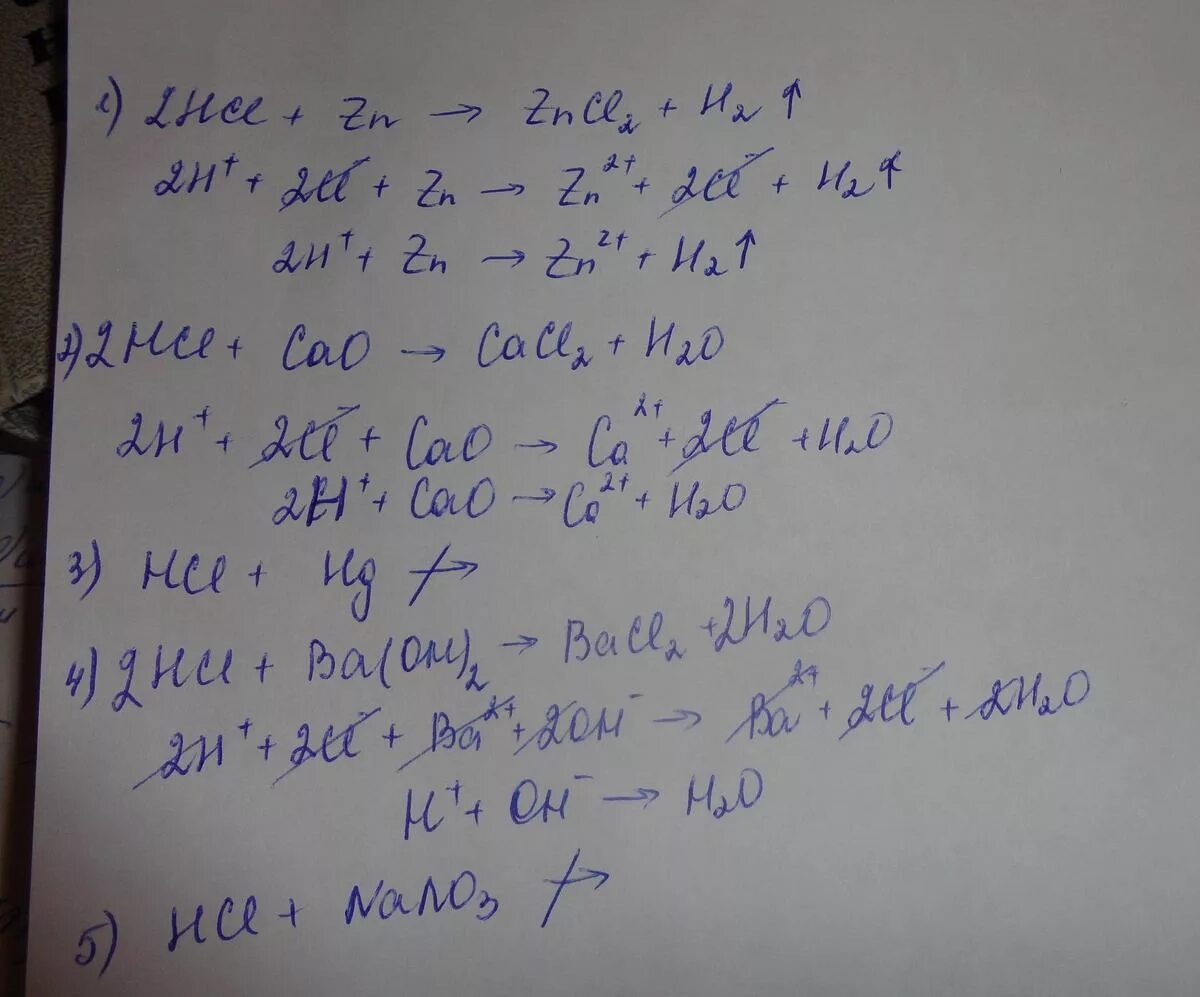 1) 2HCl + Zn → ZnCl₂ + H₂↑
2H⁺ + 2Cl⁻ + Zn → Zn²⁺ + 2Cl⁻ + H₂↑
2H⁺ + Zn → Zn²⁺ + H₂↑
2) 2HCl + CaO → CaCl₂ + H₂O
2H⁺ + 2Cl⁻ + CaO → Ca²⁺ + 2Cl⁻ + H₂O
2H⁺ + CaO → Ca²⁺ + H₂O
3) HCl + Hg ↛
4) 2HCl + Ba(OH)₂ → BaCl₂ + 2H₂O
2H⁺ + 2Cl⁻ + Ba²⁺ + 2OH⁻ → Ba²⁺ + 2Cl⁻ + 2H₂O
H⁺ + OH⁻ → H₂O
5) HCl + NaNO₃ ↛